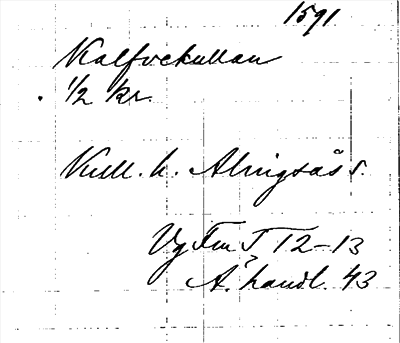 1591
Kalfvekullan
1/2 kr.
Kull. h. Alingsås s.
Vg Fm T 12-13
A. handl. 43